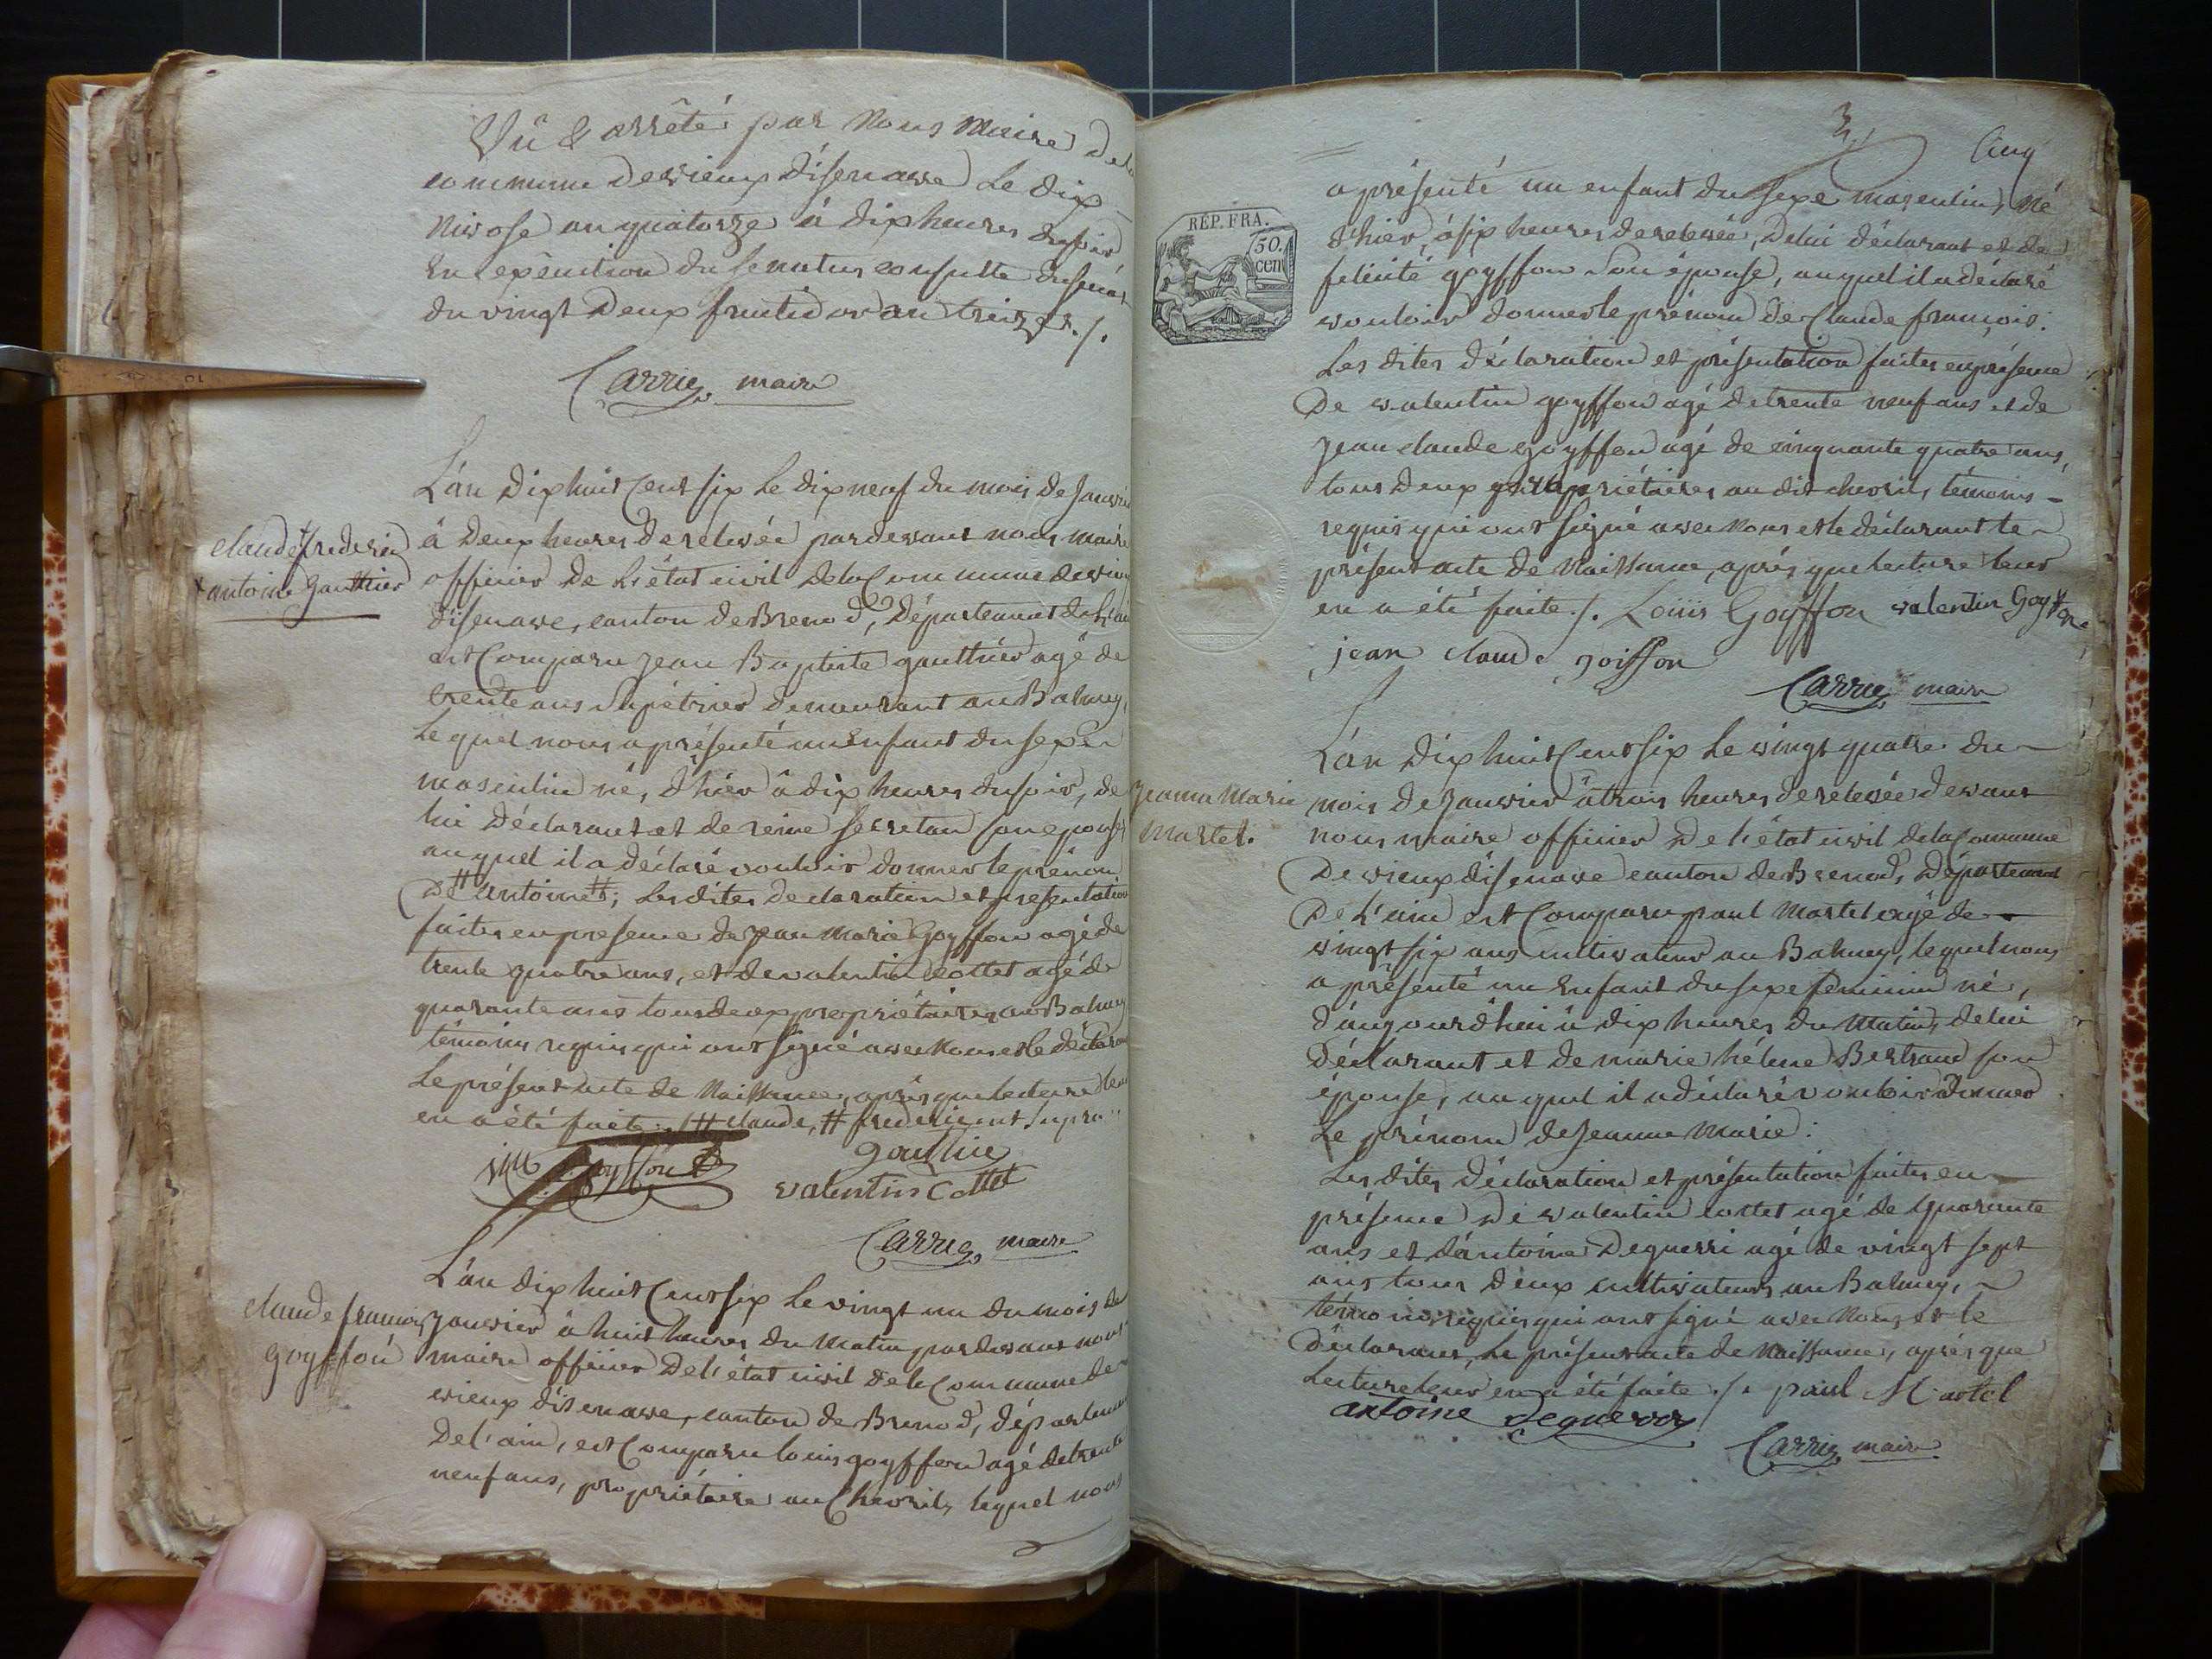 Vû & arrêté par Nous Maire de la
commune de vieux d'isenave Le dix
Nivose an quatorze à dix heures du soir
En exécution du senatus consulte du senat
du vingt Deux fructidor an treize ./.
Carrier maire
L'an Dix huit Cent six Le dix neuf du mois de Janvier
claude frederic
antoine Gauthier
à Deux heures de relevée pardevant nous maire
officier De L'état civil De la Commune de vieux
disenave, canton de Brenod, Département de L'ain
est Comparu Jean Baptiste gauthier agé de
trente ans Salpêtrier demeurant au Balmey,
Lequel nous a présenté un Enfant du sexe
masculin né, d'hier à dix heures du soir, de
lui Déclarant et de reine secretan son epouse
auquel il a déclaré vouloir donner le prénom
De # antoine #; Les dites declaration et presentation
faites en presence de Jean Marie Goyffon agé de
trente quatre ans, et de valentin cottet agé de
quarante ans tous deux proprietaires au Balmey
témoins requis qui ont signé avec Nous et le déclarant
Le présent acte de Naissance, après que lecture leur
en a été faite ./. # claude, # frederic
gauthier
Goyffon
valentin Cottet
Carrier maire
L'an dix huit Cent six Le vingt un du mois de
claude françois
goyffon
Janvier à huit heures du Matin pardevant nous
maire officier De l'état civil De la Commune de
vieux disenave, canton de Brenod, département
De l'ain, est Comparu louis goyffon agé de trente
neuf ans, propriétaire au Chevril, lequel nous
3
Cinq
RÉP. FRA.
50.
cen
a présenté un enfant du sexe masculin, né
d'hier, à six heures de relevée, De lui déclarant et de
felicité goyffon Son épouse, auquel il a déclaré
vouloir donner le prénom de Claude françois.
Les dites déclaration et présentation faites en présence
De valentin goyffon agé de trente neuf ans et de
Jean claude goyffon agé de cinquante quatre ans,
tous Deux propriétaires au dit chevril, témoins
requis qui ont signé avec Nous et le déclarant le
présent acte de Naissance, après que lecture leur
en a été faite ./. Loüis Goyffon valentin Goyffon
jean claude goiffon
Carrier maire
L'an Dix huit Cent six Le vingt quatre du
Jeanne Marie
Martel.
mois de Janvier à trois heures de relevée devant
nous maire officier De l'état civil de la Commune
De vieux disenave canton de Brenod, Département
De L'ain est Comparu paul Martel agé de
vingt six ans cultivateur au Balmey, lequel nous
a présenté un Enfant du sexe feminin né,
d'aujourdhui à dix heures du Matin, de lui
Déclarant et de marie hélene Bertrand son
épouse, auquel il a déclaré vouloir donner
Le prénom de Jeanne Marie:
Les dites déclaration et présentation faites en
présence De valentin cottet agé de quarante
ans et d'antoine Deguerri agé de vingt sept
ans tous Deux cultivateurs au Balmey,
témoins requis qui ont signé avec Nous et le
Déclarant, Le présent acte de Naissance, après que
Lecture leur en a été faite ./. paul Martel
antoine Deguerry
Carrier maire